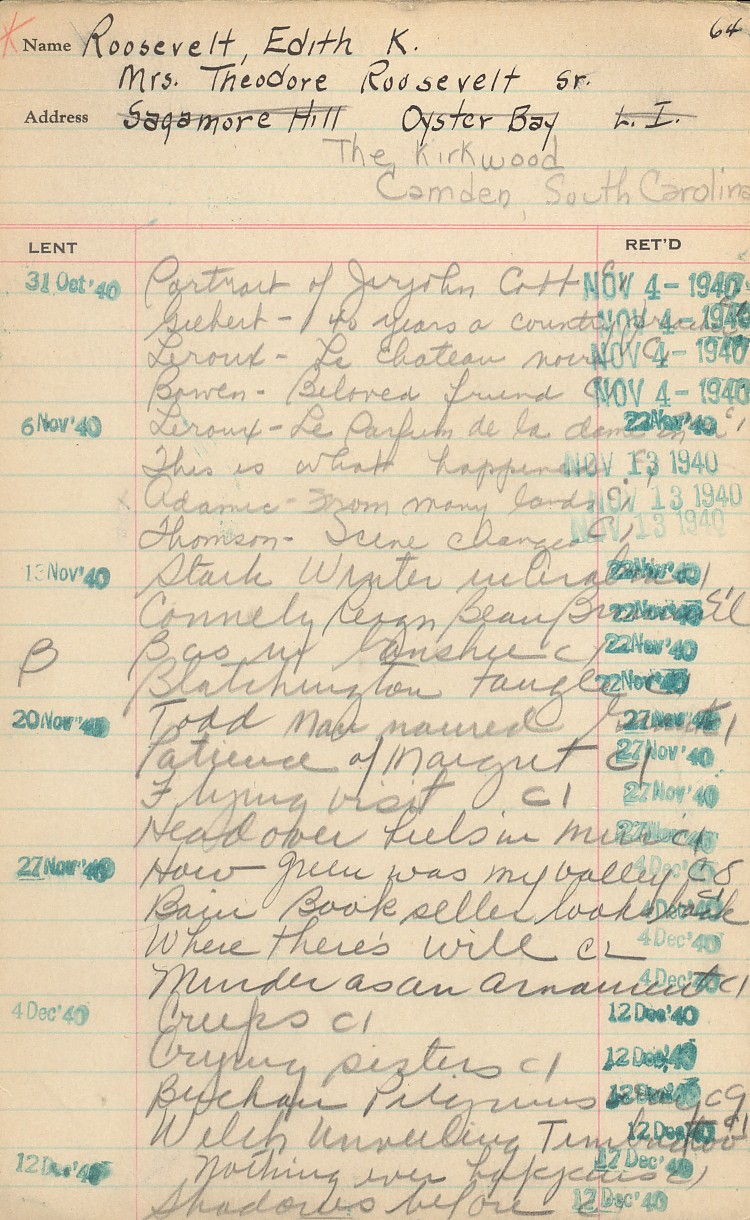 64
Name Roosevelt, Edith K.
Mrs. Theodore Roosevelt Sr.
Address Sagamore Hill Oyster Bay L. I.
The Kirkwood
Camden, South Carolina
LENT RET'D
31 Oct '40 Portrait of Jerjohn Cott NOV 4 - 1940
Gilbert - 40 years a country NOV 4 - 1940
Leroux - Le chateau noir C1 NOV 4 - 1940
Bowen - Beloved friend NOV 4 - 1940
6 Nov '40 Leroux - Le Parfum de la dame en 22 Nov '40
This is what happened NOV 13 1940
Adamic - From many lands C1 NOV 13 1940
Thomson - Scene changes C1 NOV 13 1940
13 Nov '40 Stark Winter in 22 Nov '40
Connely Reign Beau Brummell C1 22 Nov '40
B Bas C1 22 Nov '40
Blatchington Tangle 22 Nov '40
20 Nov '40 Todd Man named Grant 27 Nov '40
Patience of Maigret C1 27 Nov '40
Flying visit C1 27 Nov '40
Head over heels in C1 27 Nov '40
27 Nov '40 How green was my valley C8 4 Dec '40
Bain Bookseller looks back C1 4 Dec '40
Where there's will C2 4 Dec '40
Murder as an ornament C1 4 Dec '40
4 Dec '40 Creeps C1 12 Dec '40
Crying sisters C1 12 Dec '40
Buchan Pilgrims C9 12 Dec '40
Welch Unveiling Timbuctoo C1 12 Dec '40
12 Dec '40 Nothing ever happens C1 17 Dec '40
Shadows before 17 Dec '40